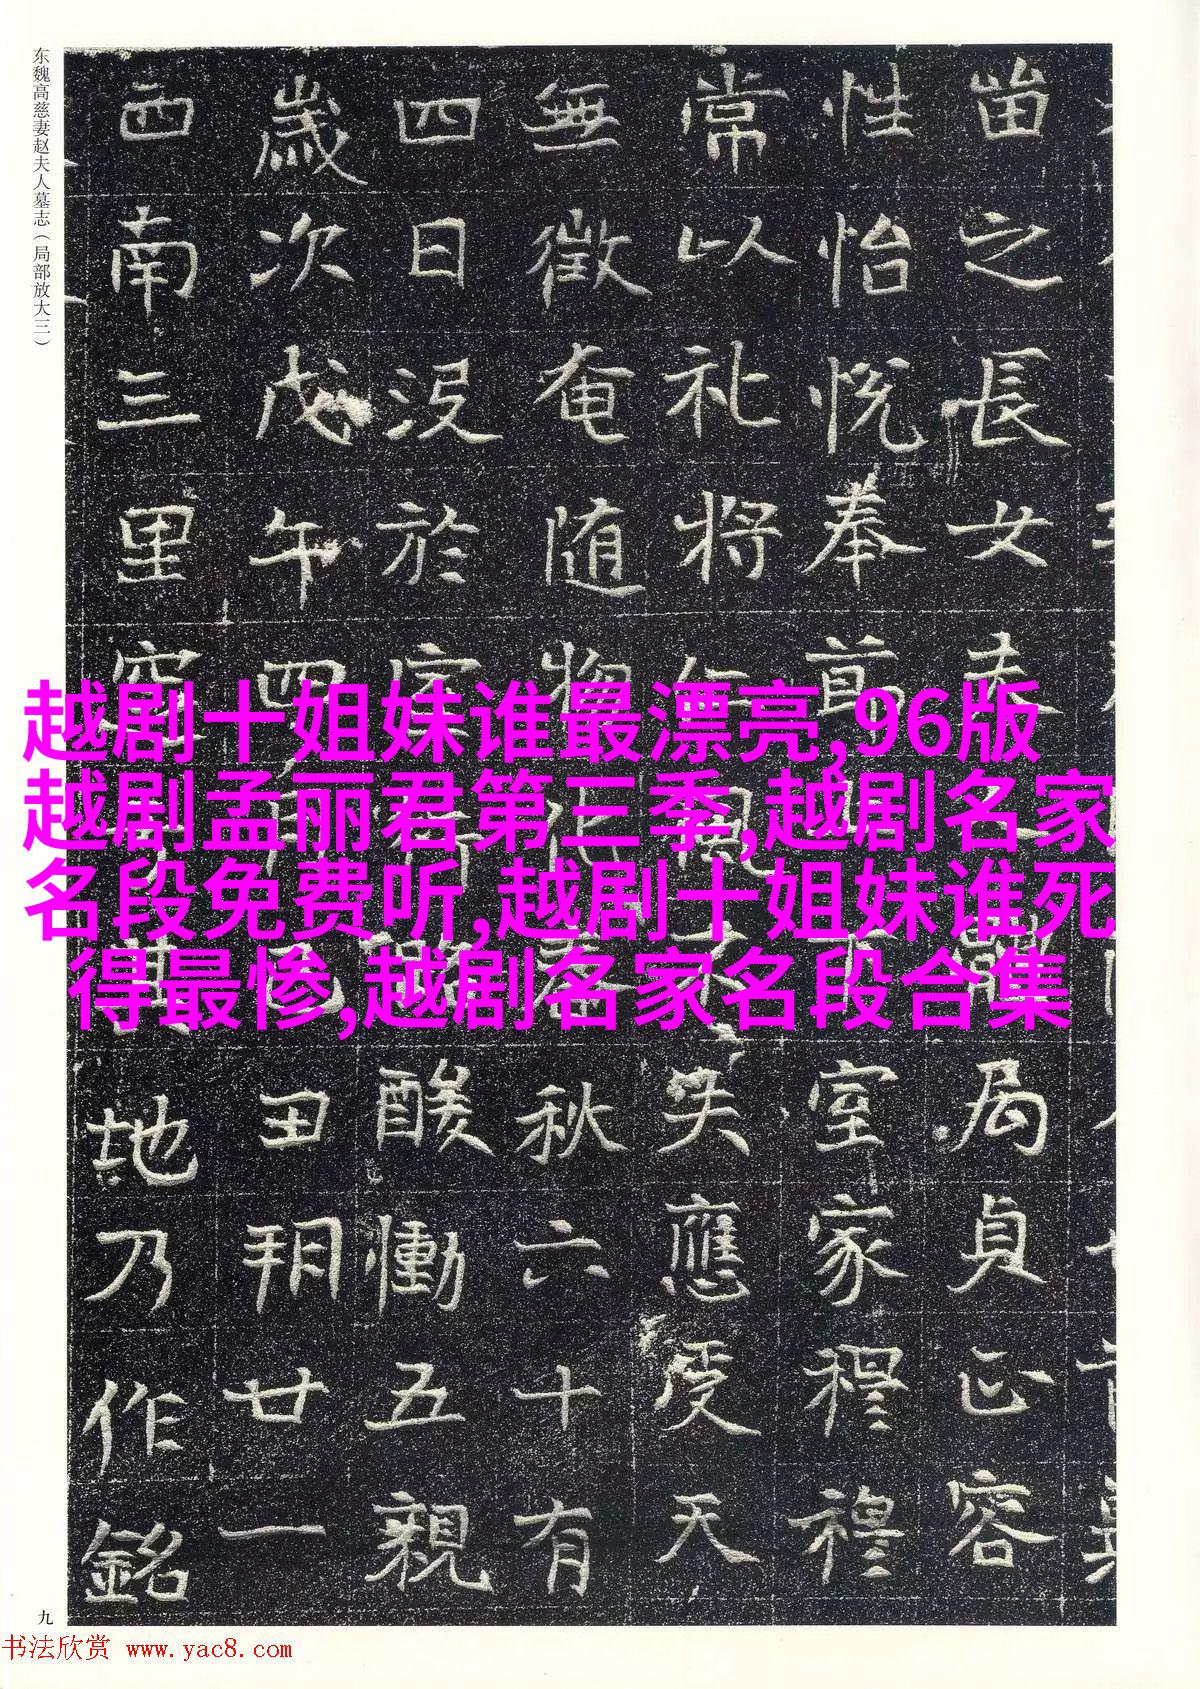 东魏高慈妻赵夫人墓志（局部放大三）
苗之長女
局貞正容
性怡悦奉
室家穆穆
常以礼將
失應受天
無徵奄随
秋六十有
四日没於
酸慟五親
歲次戊午四
丑朔廿一
西南三里
地乃作銘
越剧十姐妹谁最漂亮,96版
越剧孟丽君第三季,越剧名家
名段免费听,越剧十姐妹谁死
得最惨,越剧名家名段合集
九
书法欣赏 www.yac8.com